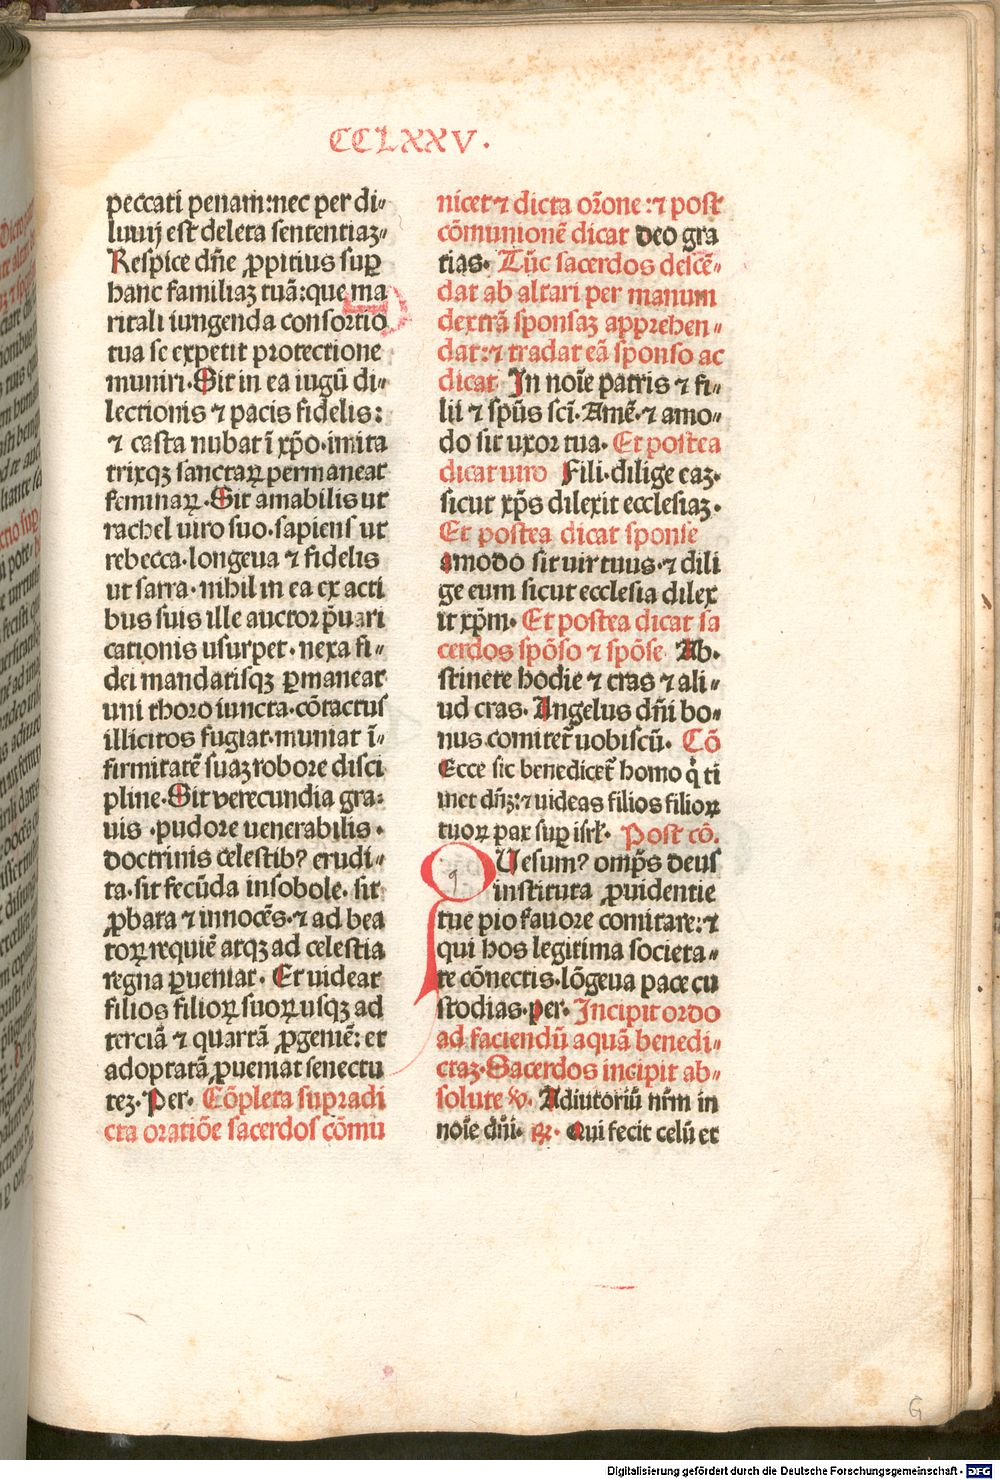 CCLXXV.
peccati penam:nec per di⸗
luuij est deleta sententiaꝫ⸗
Respice dñe ꝓpitius suꝑ
hanc familiaꝫ tuã:que ma
ritali iungenda consortio
tua se expetit protectione
muniri.Sit in ea iugũ di⸗
lectionis ⁊ pacis fidelis:
⁊ casta nubat ĩ xp̃o.imita
trixqꝫ sanctaꝝ permaneat
feminaꝝ.Sit amabilis ut
rachel uiro suo.sapiens ut
rebecca.longeua ⁊ fidelis
ut sarra.nihil in ea ex acti
bus suis ille auctor p̃uari
cationis usurpet.nexa fi⸗
dei mandatisqꝫ ꝑmaneat
uni thoro iuncta.cõtactus
illicitos fugiat.muniat ĩ⸗
firmitatẽ suaꝫ robore disci
pline.Sit verecundia gra⸗
uis .pudore uenerabilis.
doctrinis celestibꝰ erudi⸗
ta.sit fecũda in sobole. sit
ꝓbata ⁊ innocẽs.⁊ ad bea
toꝝ requiẽ atqꝫ ad celestia
regna ꝑueniat. Et uideat
filios filioꝝ suoꝝ usqꝫ ad
terciã ⁊ quartã ꝓgeniẽ: et
adoptatã ꝑueniat senectu
teꝫ.Per. Cõpleta supradi
cta oratiõe sacerdos cõmu
nicet ⁊ dicta or̃one :⁊ post
cõmunionẽ dicat Deo gra
tias. Tũc sacerdos descẽ⸗
dat ab altari per manum
dextrã sponsaꝫ apprehen⸗
dat:⁊ tradat eã sponso ac
dicat In noĩe patris ⁊ fi⸗
lii ⁊ sp̃us sc̃i.Amẽ.⁊ amo⸗
do sit uxor tua. Et postea
dicat uiro Fili.dilige eaꝫ.
sicut xp̃s dilexit ecclesiaꝫ.
Et postea dicat sponse
Amodo sit uir tuus.⁊ dili
ge eum sicut ecclesia dilex
it xp̃m. Et postea dicat sa
cerdos spõso ⁊ spõse Ab.
stinete hodie ⁊ cras ⁊ ali⸗
ud cras. Angelus dñi bo⸗
nus comitet᷑ uobiscũ. Cõ
Ecce sic benedicet᷑ homo q̃ ti
met dñꝫ:⁊ uideas filios filioꝝ
tuoꝝ pax suꝑ isrl̃. Post cõ.
q
QUesumꝰ omp̃s deus
instituta ꝓuidentie
tue pio fauore comitare:⁊
qui hos legitima societa⸗
te cõnectis.lõgeua pace cu
stodias.per. Incipit ordo
ad faciendũ aquã benedi⸗
ctaꝫ.Sacerdos incipit ab⸗
solute ℣. Adiutoriũ nr̃m in
noĩe dñi. ℟. Qui fecit celũ et
G
Digitalisierung gefördert durch die Deutsche Forschungsgemeinschaft - DFG